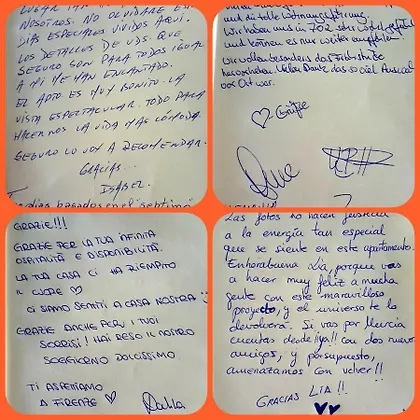 LUGAR
NOSOTROS. NO OLVIDARÉ EN
DÍAS ESPECIALES VIVIDOS AQUÍ.
LOS DETALLES DE UDS. QUE
SEGURO SON PARA TODOS IGUAL
A MÍ ME HAN ENCANTADO.
EL APTO ES MUY BONITO. LA
VISTA ESPECTACULAR. TODO PARA
HACERNOS LA VIDA MÁS CÓMODA.
SEGURO LO VOY A RECOMENDAR.
GRACIAS...
ISABEL.
en el séptimo
und die tolle
Wir haben uns in 702 sehr wohl gefühlt
und können es nur weiter empfehlen.
Wir wollen besonders das Frühstück
Vielen Dank
vor Ort war.
♡ Grüße
GRAZIE!!!
GRAZIE PER LA TUA INFINITA
OSPITALITÀ E DISPONIBILITÀ.
LA TUA CASA CI HA RIEMPITO
IL CUORE ♡
CI SIAMO SENTITI A CASA NOSTRA :)
GRAZIE ANCHE PER I TUOI
SORRISI! HAI RESO IL NOSTRO
SOGGIORNO DOLCISSIMO
TI ASPETTIAMO
A FIRENZE ♡
Las fotos no hacen justicia
a la energía tan especial
que se siente en este apartamento.
Enhorabuena Lía, porque vas
a hacer muy feliz a mucha
gente con este maravilloso
proyecto, y el universo te lo
devolverá. Si vas por Murcia
cuentas desde ¡ya!! con dos nuevos
amigos, y por supuesto,
amenazamos con volver!!
GRACIAS LÍA!!